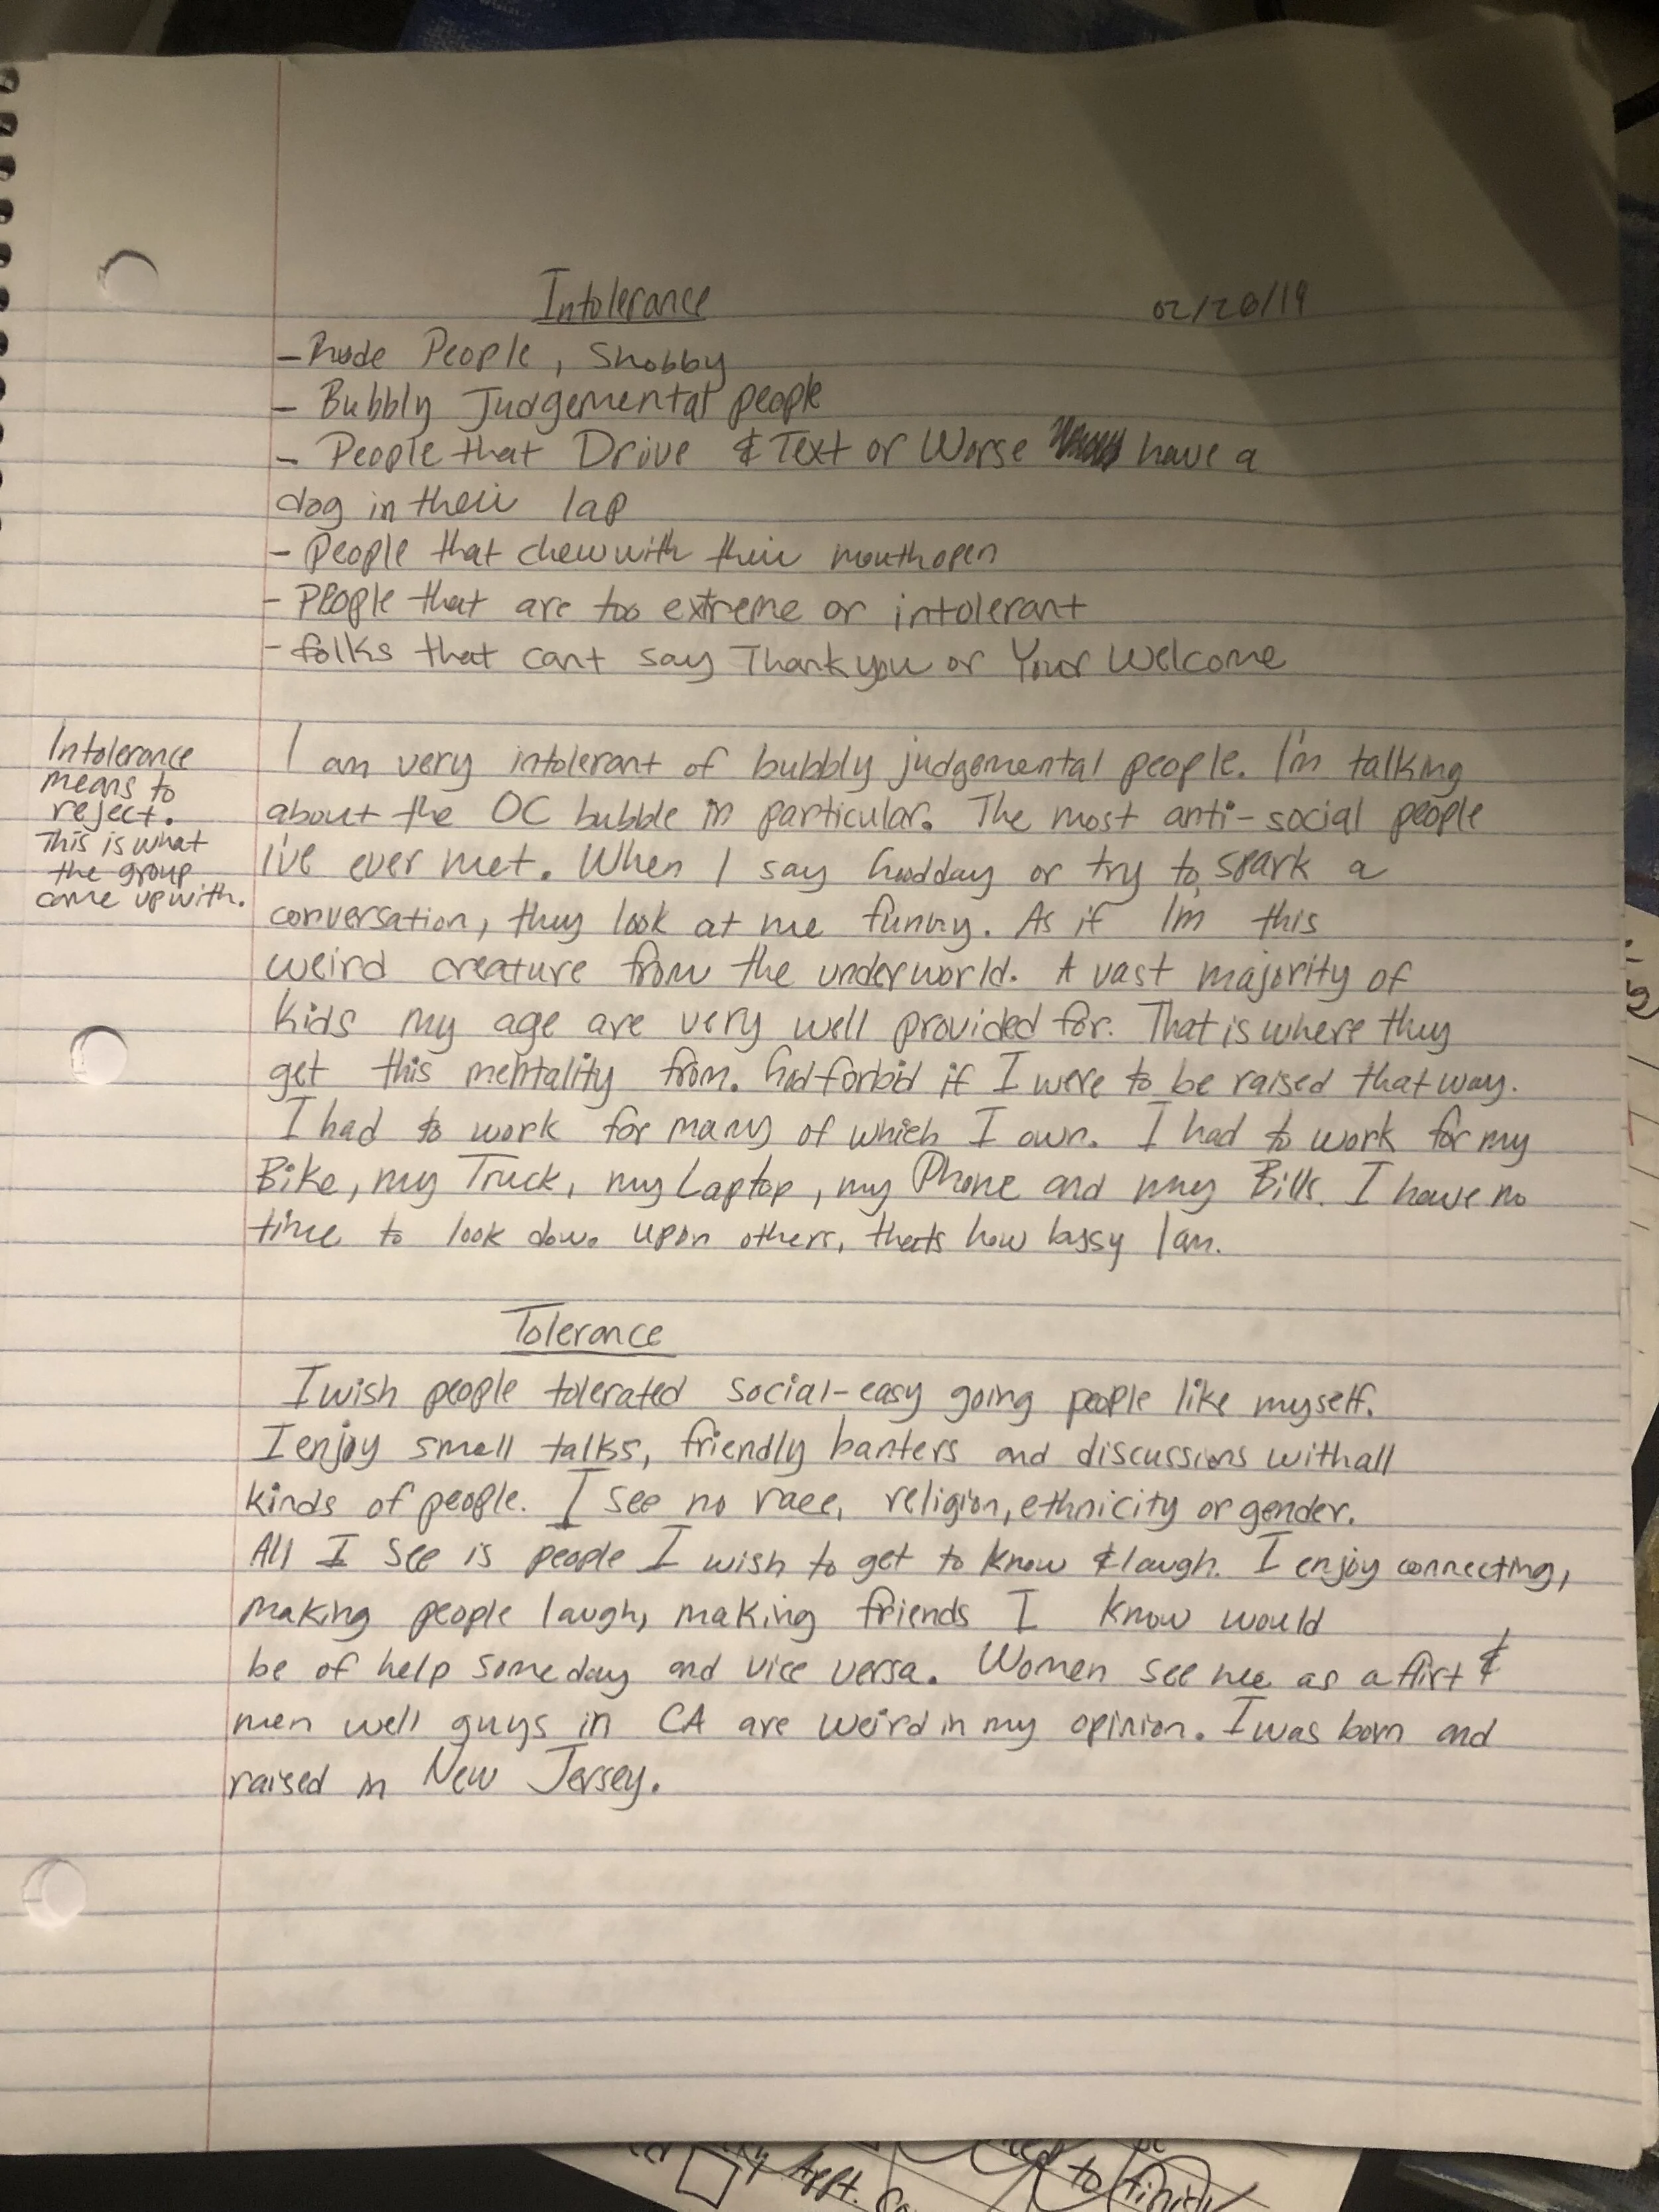 Intolerance 02/20/19
- Rude People, Snobby
- Bubbly Judgemental people
- People that Drive & Text or Worse have a
dog in their lap
- People that chew with their mouth open
- People that are too extreme or intolerant
- folks that cant say Thank you or Your Welcome
Intolerance
means to
reject.
This is what
the group
came up with.
I am very intolerant of bubbly judgemental people. I'm talking
about the OC bubble in particular. The most anti-social people
I've ever met. When I say Goodday or try to spark a
conversation, they look at me funny. As if I'm this
weird creature from the underworld. A vast majority of
kids my age are very well provided for. That is where they
get this mentality from. God forbid if I were to be raised that way.
I had to work for many of which I own. I had to work for my
Bike, my Truck, my Laptop, my Phone and my Bills. I have no
time to look down upon others, thats how bussy I am.
Tolerance
I wish people tolerated social-easy going people like myself.
I enjoy small talks, friendly banters and discussions with all
kinds of people. I see no race, religion, ethnicity or gender.
All I see is people I wish to get to know & laugh. I enjoy connecting,
making people laugh, making friends I know would
be of help someday and vice versa. Women see me as a flirt &
men well guys in CA are weird in my opinion. I was born and
raised in New Jersey.
to finish